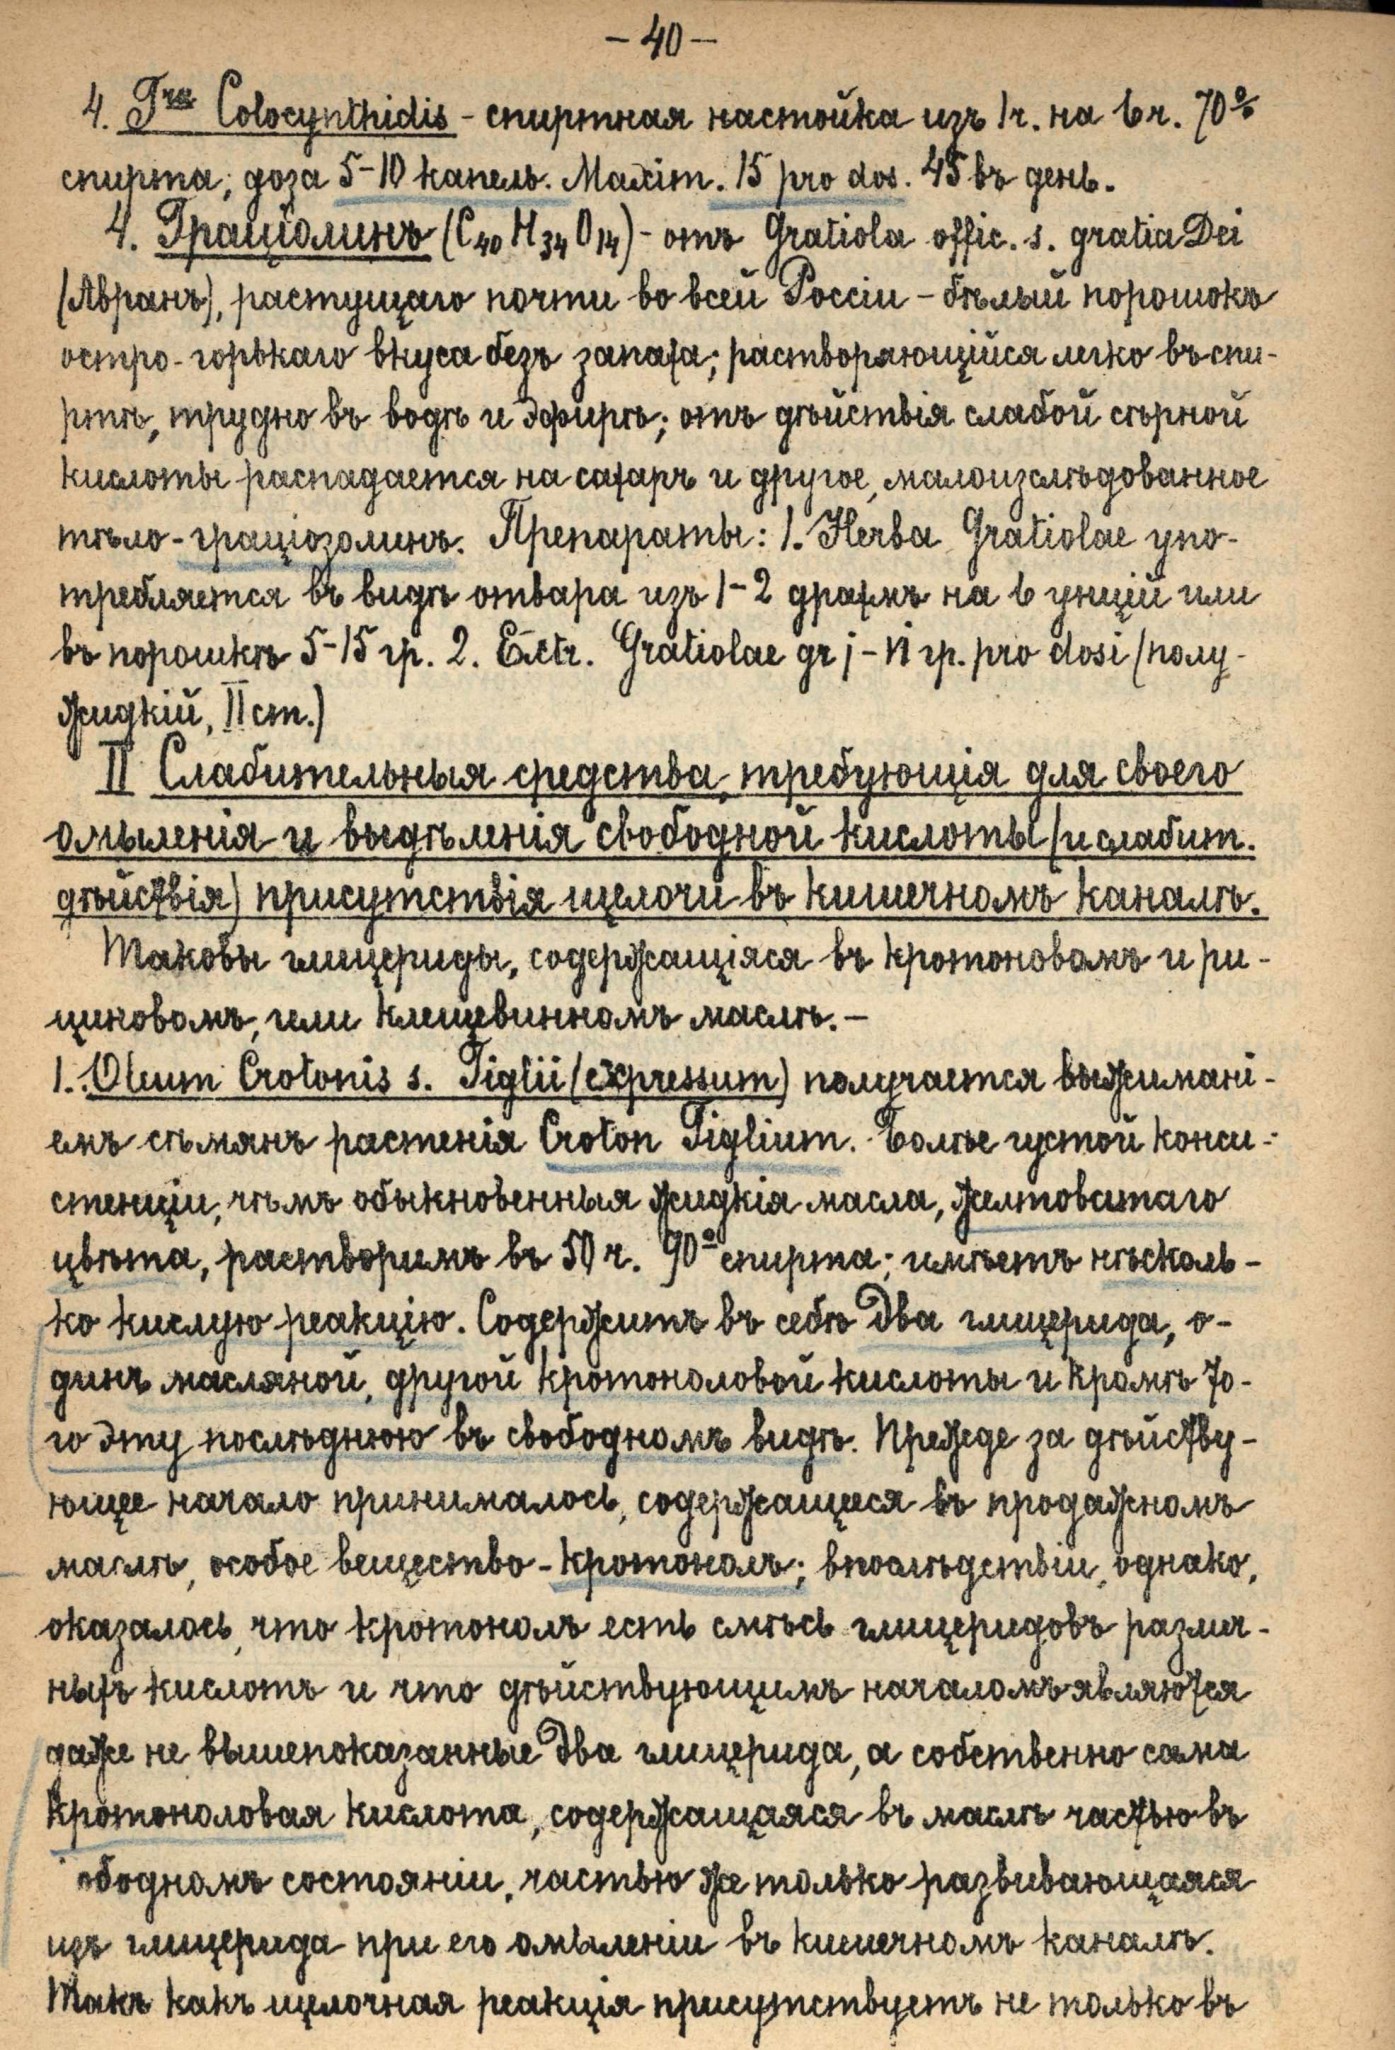 – 40 –
4. Tra Colocynthidis – спиртная настойка изъ 1 ч. на 6 ч. 70%
спирта; доза 5–10 капель. Maxim. 15 pro dos. 45 въ день.
4. Граціолинъ (C40 H34 O14) – отъ Gratiola offic. s. gratia Dei
(Авранъ), растущаго почти во всей Россіи – бѣлый порошокъ
остро-горькаго вкуса безъ запаха; растворяющійся легко въ спи-
ртѣ, трудно въ водѣ и эфирѣ; отъ дѣйствія слабой сѣрной
кислоты распадается на сахаръ и другое, малоизслѣдованное
тѣло – граціозолинъ. Препараты: 1. Herba Gratiolae упо-
требляется въ видѣ отвара изъ 1–2 драхмъ на 6 унцій или
въ порошкѣ 5–15 гр. 2. Extr. Gratiolae gr j – гр. pro dosi (полу-
жидкій, II ст.)
II Слабительныя средства, требующія для своего
омыленія и выдѣленія свободной кислоты (и слабит.
дѣйствія) присутствія щелочи въ кишечномъ каналѣ.
Таковы глицериды, содержащіяся въ кротоновомъ и ри-
циновомъ, или клещевинномъ маслѣ. –
1. Oleum Crotonis s. Tiglii (expressum) получается выжимані-
емъ сѣмянъ растенія Croton Tiglium. Болѣе густой конси-
стенціи, чѣмъ обыкновенныя жидкія масла, желтоватаго
цвѣта, растворимъ въ 50 ч. 90° спирта; имѣетъ нѣсколь-
ко кислую реакцію. Содержитъ въ себѣ два глицерида, о-
динъ масляной, другой кротоноловой кислоты и кромѣ то-
го эту послѣднюю въ свободномъ видѣ. Прежде за дѣйству-
ющее начало принималось, содержащееся въ продажномъ
маслѣ, особое вещество – кротонолъ; впослѣдствіи, однако,
оказалось, что кротонолъ есть смѣсь глицеридовъ различ-
ныхъ кислотъ и что дѣйствующимъ началомъ являются
даже не вышепоказанные два глицерида, а собственно сама
кротоноловая кислота, содержащаяся въ маслѣ частью въ
ободномъ состояніи, частью же только развивающаяся
изъ глицерида при его омыленіи въ кишечномъ каналѣ.
Такъ какъ щелочная реакція присутствуетъ не только въ